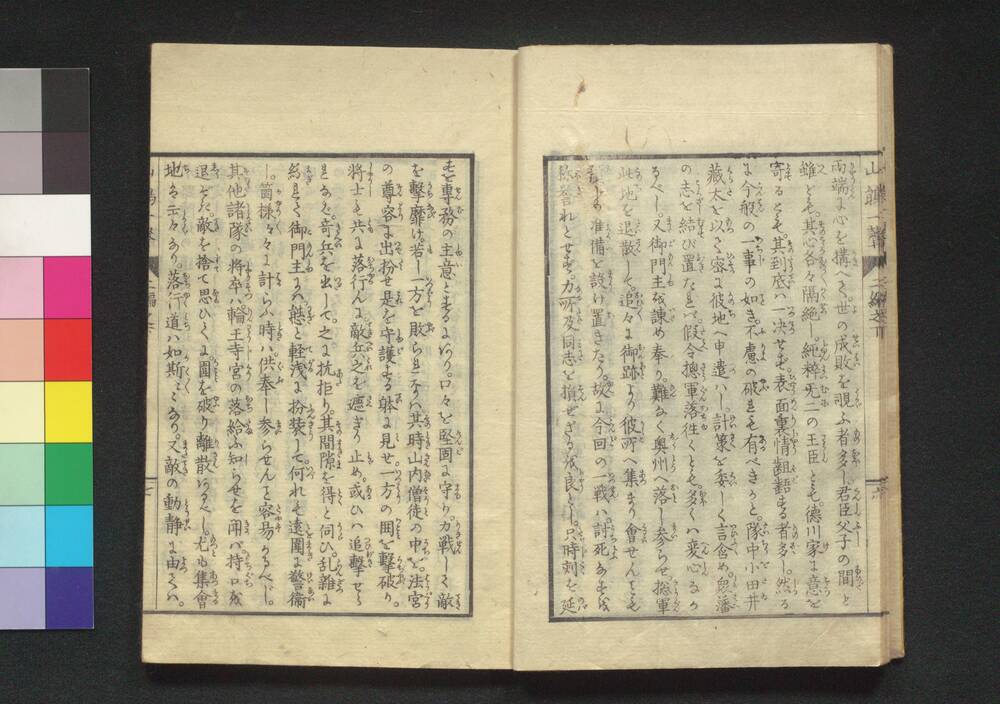 両端に心を構へて世の成敗を覗ふ者多し君臣父子の間と
雖ども。其心各々隔絶し。純粋无二の王臣とも。徳川家に意を
寄るとも。其到底ハ一决せず。表面裏情齟齬する者多し。然る
に今般の一事の如き。不慮の破れも有べきかと。隊中小田井
藏太を以て密に彼地へ申遣ハし。計策を委しく言含め。藩
の志を結び置たれバ。假令摠軍落徃くとも。多くハ変心るか
るべし。又御門主を諌め奉り。難なく奥州へ落し参らせ。摠軍
此地を退散して。追々に御跡より彼所へ集まり會せんとも
准備を設け置きたり。故に今回の一戦ハ討死するを
れとせず。力所及同志を損せざるを良とし。只時刻を延
すを専務の主意とするなり。口々を堅固に守り。力戦して敵
を撃靡け。若し一方を敗られなバ。其時山内僧徒の中を。法宮
の尊容に出扮せ是を守護する躰に見せ一方の囲を撃破り。
将士も共に落行んに敵兵之を遮り止め。或ひハ追撃せら
れなバ。奇兵を出して。之に抗拒り。其間隙を得と伺ひ。乱雑に
紛れて御門主にハ態と軽浅に扮装して。何れも遠圍に警衛
し。箇様々々に計らふ時ハ。供奉し参らせんこと容易かるべし。
其他諸隊の将卒ハ輪王寺宮の落給ふ知らせを聞バ持口を
退ぞき。敵を捨て思ひ〳〵に圍を破り離散なすべし。尤も集會
地ハ云々なり。落行道ハ如斯〳〵なり。又敵の動静に由てハ。